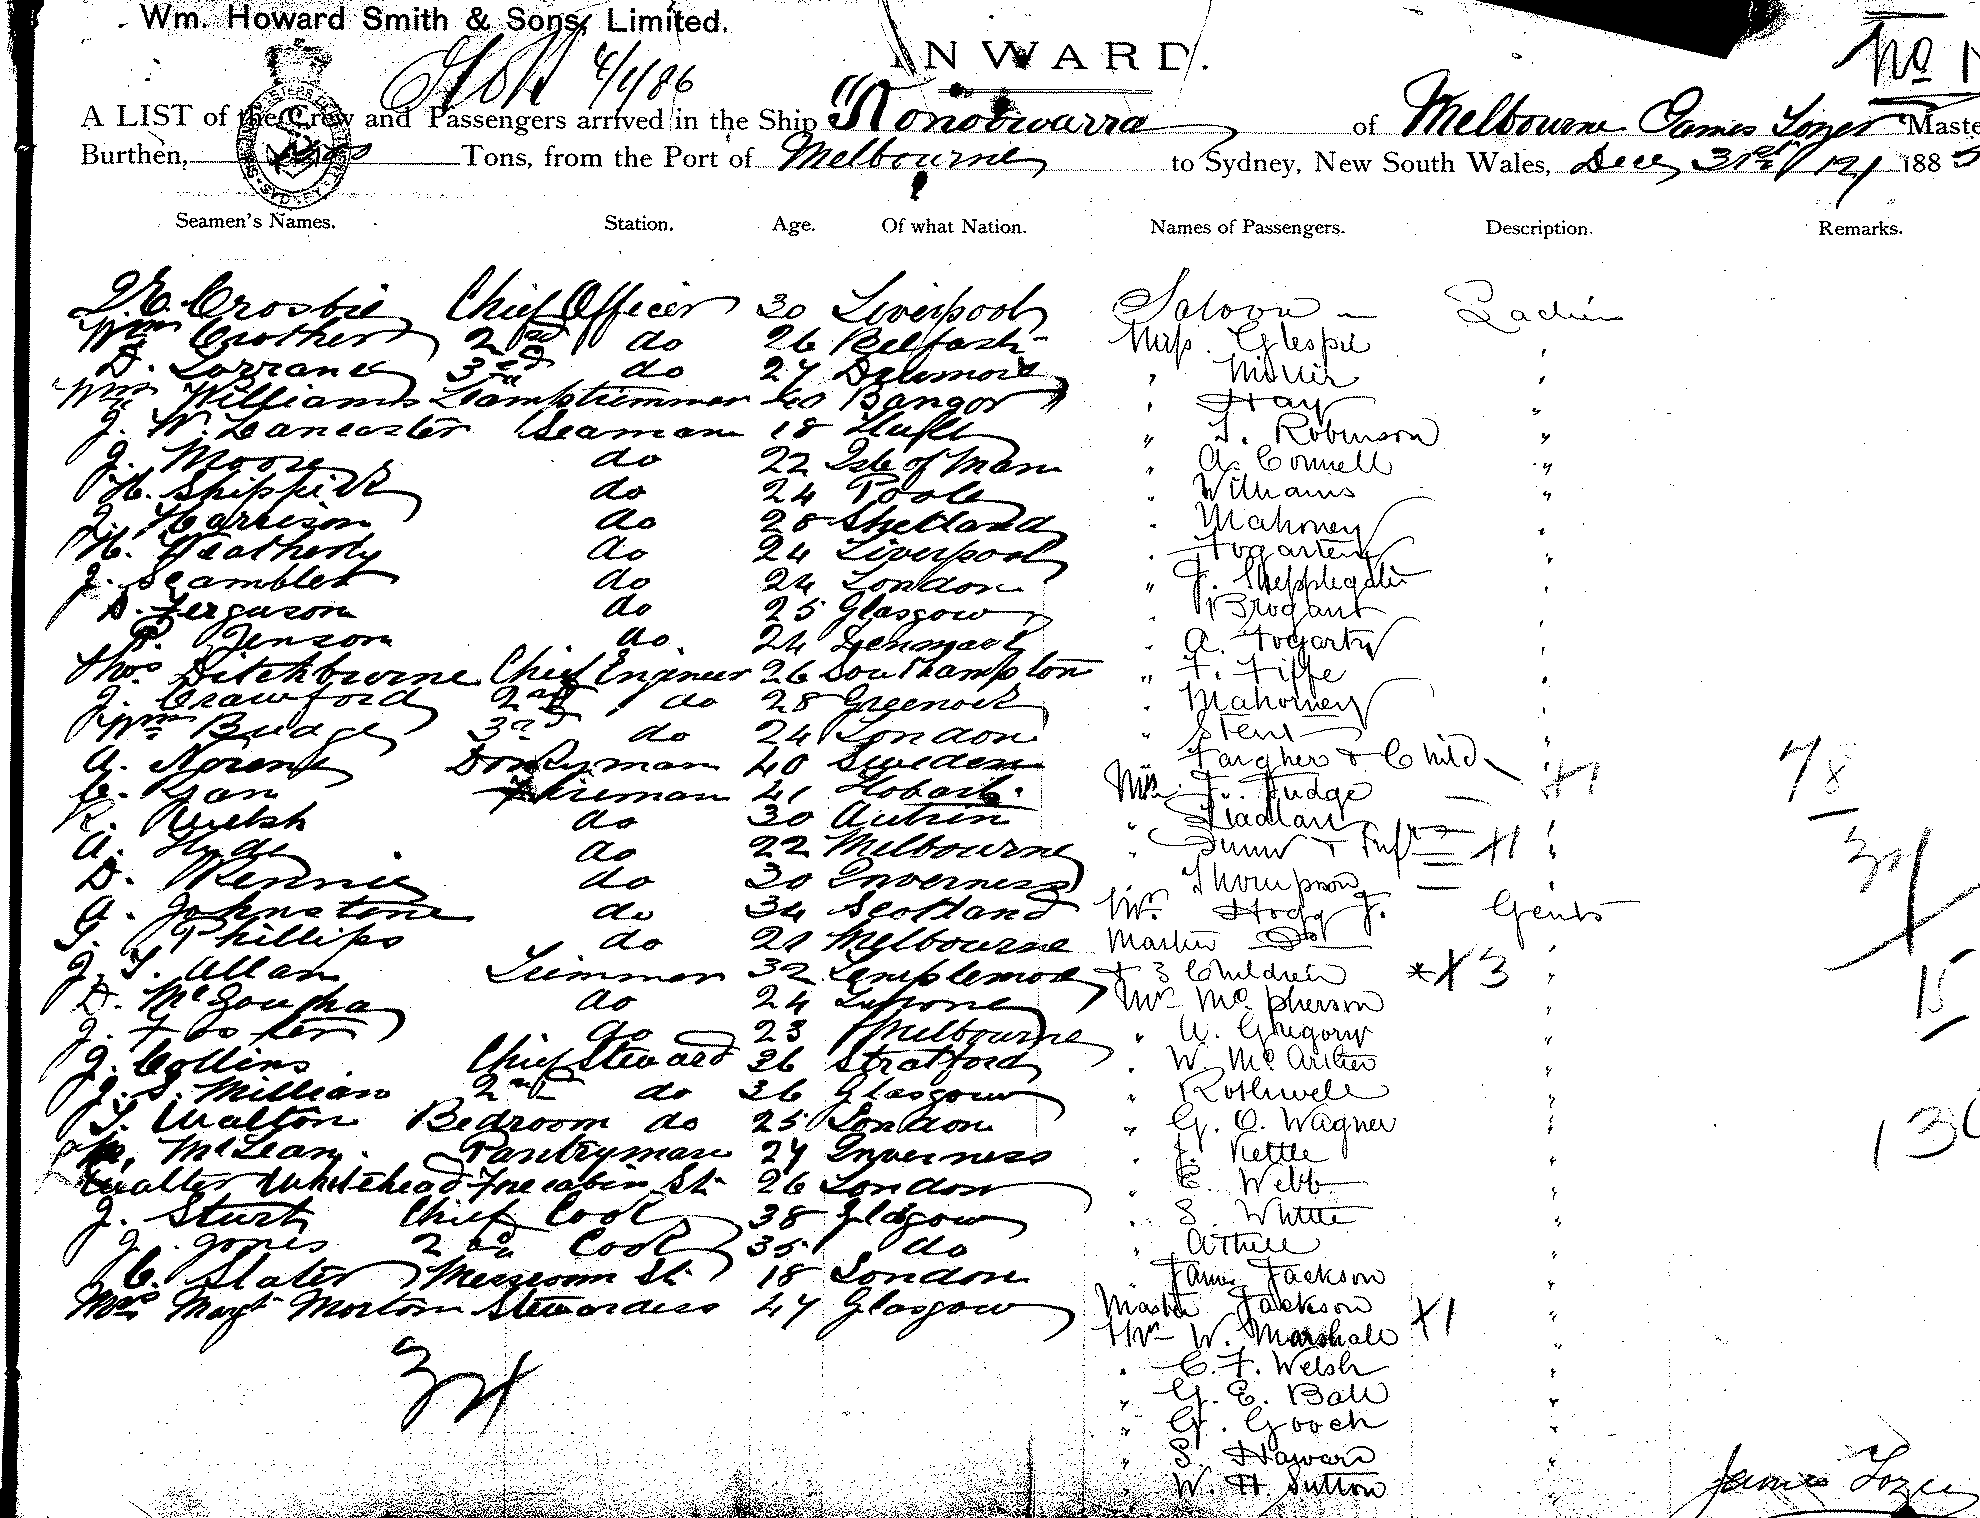 Wm. Howard Smith & Sons, Limited.
INWARD.
No
4/1/86
A LIST of the Crew and Passengers arrived in the Ship "Konoowarra of Melbourne James Tozer Maste
Burthen, Tons, from the Port of Melbourne to Sydney, New South Wales, Decr 31st 1885
Seamen's Names. Station. Age. Of what Nation. Names of Passengers. Description. Remarks.
Crosbie Chief Officer 30 Liverpool Saloon Ladies
Wm Crothers 2nd do 26 Belfast Miss Glespie "
D. Lorrane 3rd do 27 " Miller "
Wm Williams Lamptrimmer 40 Bangor " Hay "
J. W. Lancaster Seaman 18 " T. Robinson "
J. Moore do 22 Isle of Man " A. Connell "
H. Shippick do 24 Poole " Williams "
J. Harrison do 28 Shetland " Mahoney
H. Weatherly do 24 Liverpool " Fogarten "
J. Scambler do 24 London " J. Shepplegatin "
D. Ferguson do 25 Glasgow " Brogant "
P. Jenson do. 24 Denmark " A. Fogarty "
Thos Ditchbourne Chief Engineer 26 Southampton " F. Fiffe "
J. Crawford 2nd do 28 Greenock " Mahoney "
Wm Budge 3rd do 24 London " Stent "
A. Norent Donkyman 40 Sweden " Fargher & Child
C. Gan Fireman 41 Hobart Mrs F. Fudge 78
R. Welsh do 30 " "
A. Hyde do 22 Melbourne " & Inft X1 "
D. Rennie do 30 Inverness Thompson 34
A. Johnstone do 34 Scotland Mr. Hogg J. Gents
G. Phillips do 21 Melbourne Master Do "
J. T. Allan Trimmer 32 Templemore & 3 Children X3 "
D. McGougha do 24 Mr McPherson 15
J. Foster do 23 Melbourne " W. Gregory "
J. Collins Chief Steward 36 Stratford " W. McArthur "
J. S. Millian 2nd do 36 Glasgow " Rothwell "
T. Walton Bedroom do 25 London " G. O. Wagner " 13
McLean. Pantryman 27 Inverness " J. Kettle "
Walter Whitehead Forecabin St. 26 London " E. Webb "
J. Sturt Chief Cook 38 Glasgow " S. Whittle "
J. Jones 2nd Cook 35 do " Athill "
C. Slater Messroom St. 18 London " James Jackson "
Mrs Margt Morton Stewardess 47 Glasgow Master Jackson X1 "
Mr W. Marshall "
34 " C. F. Welsh "
" G. E. Ball "
" G. Gooch "
" S. Haward "
" W. H. Sutton "
James Tozer